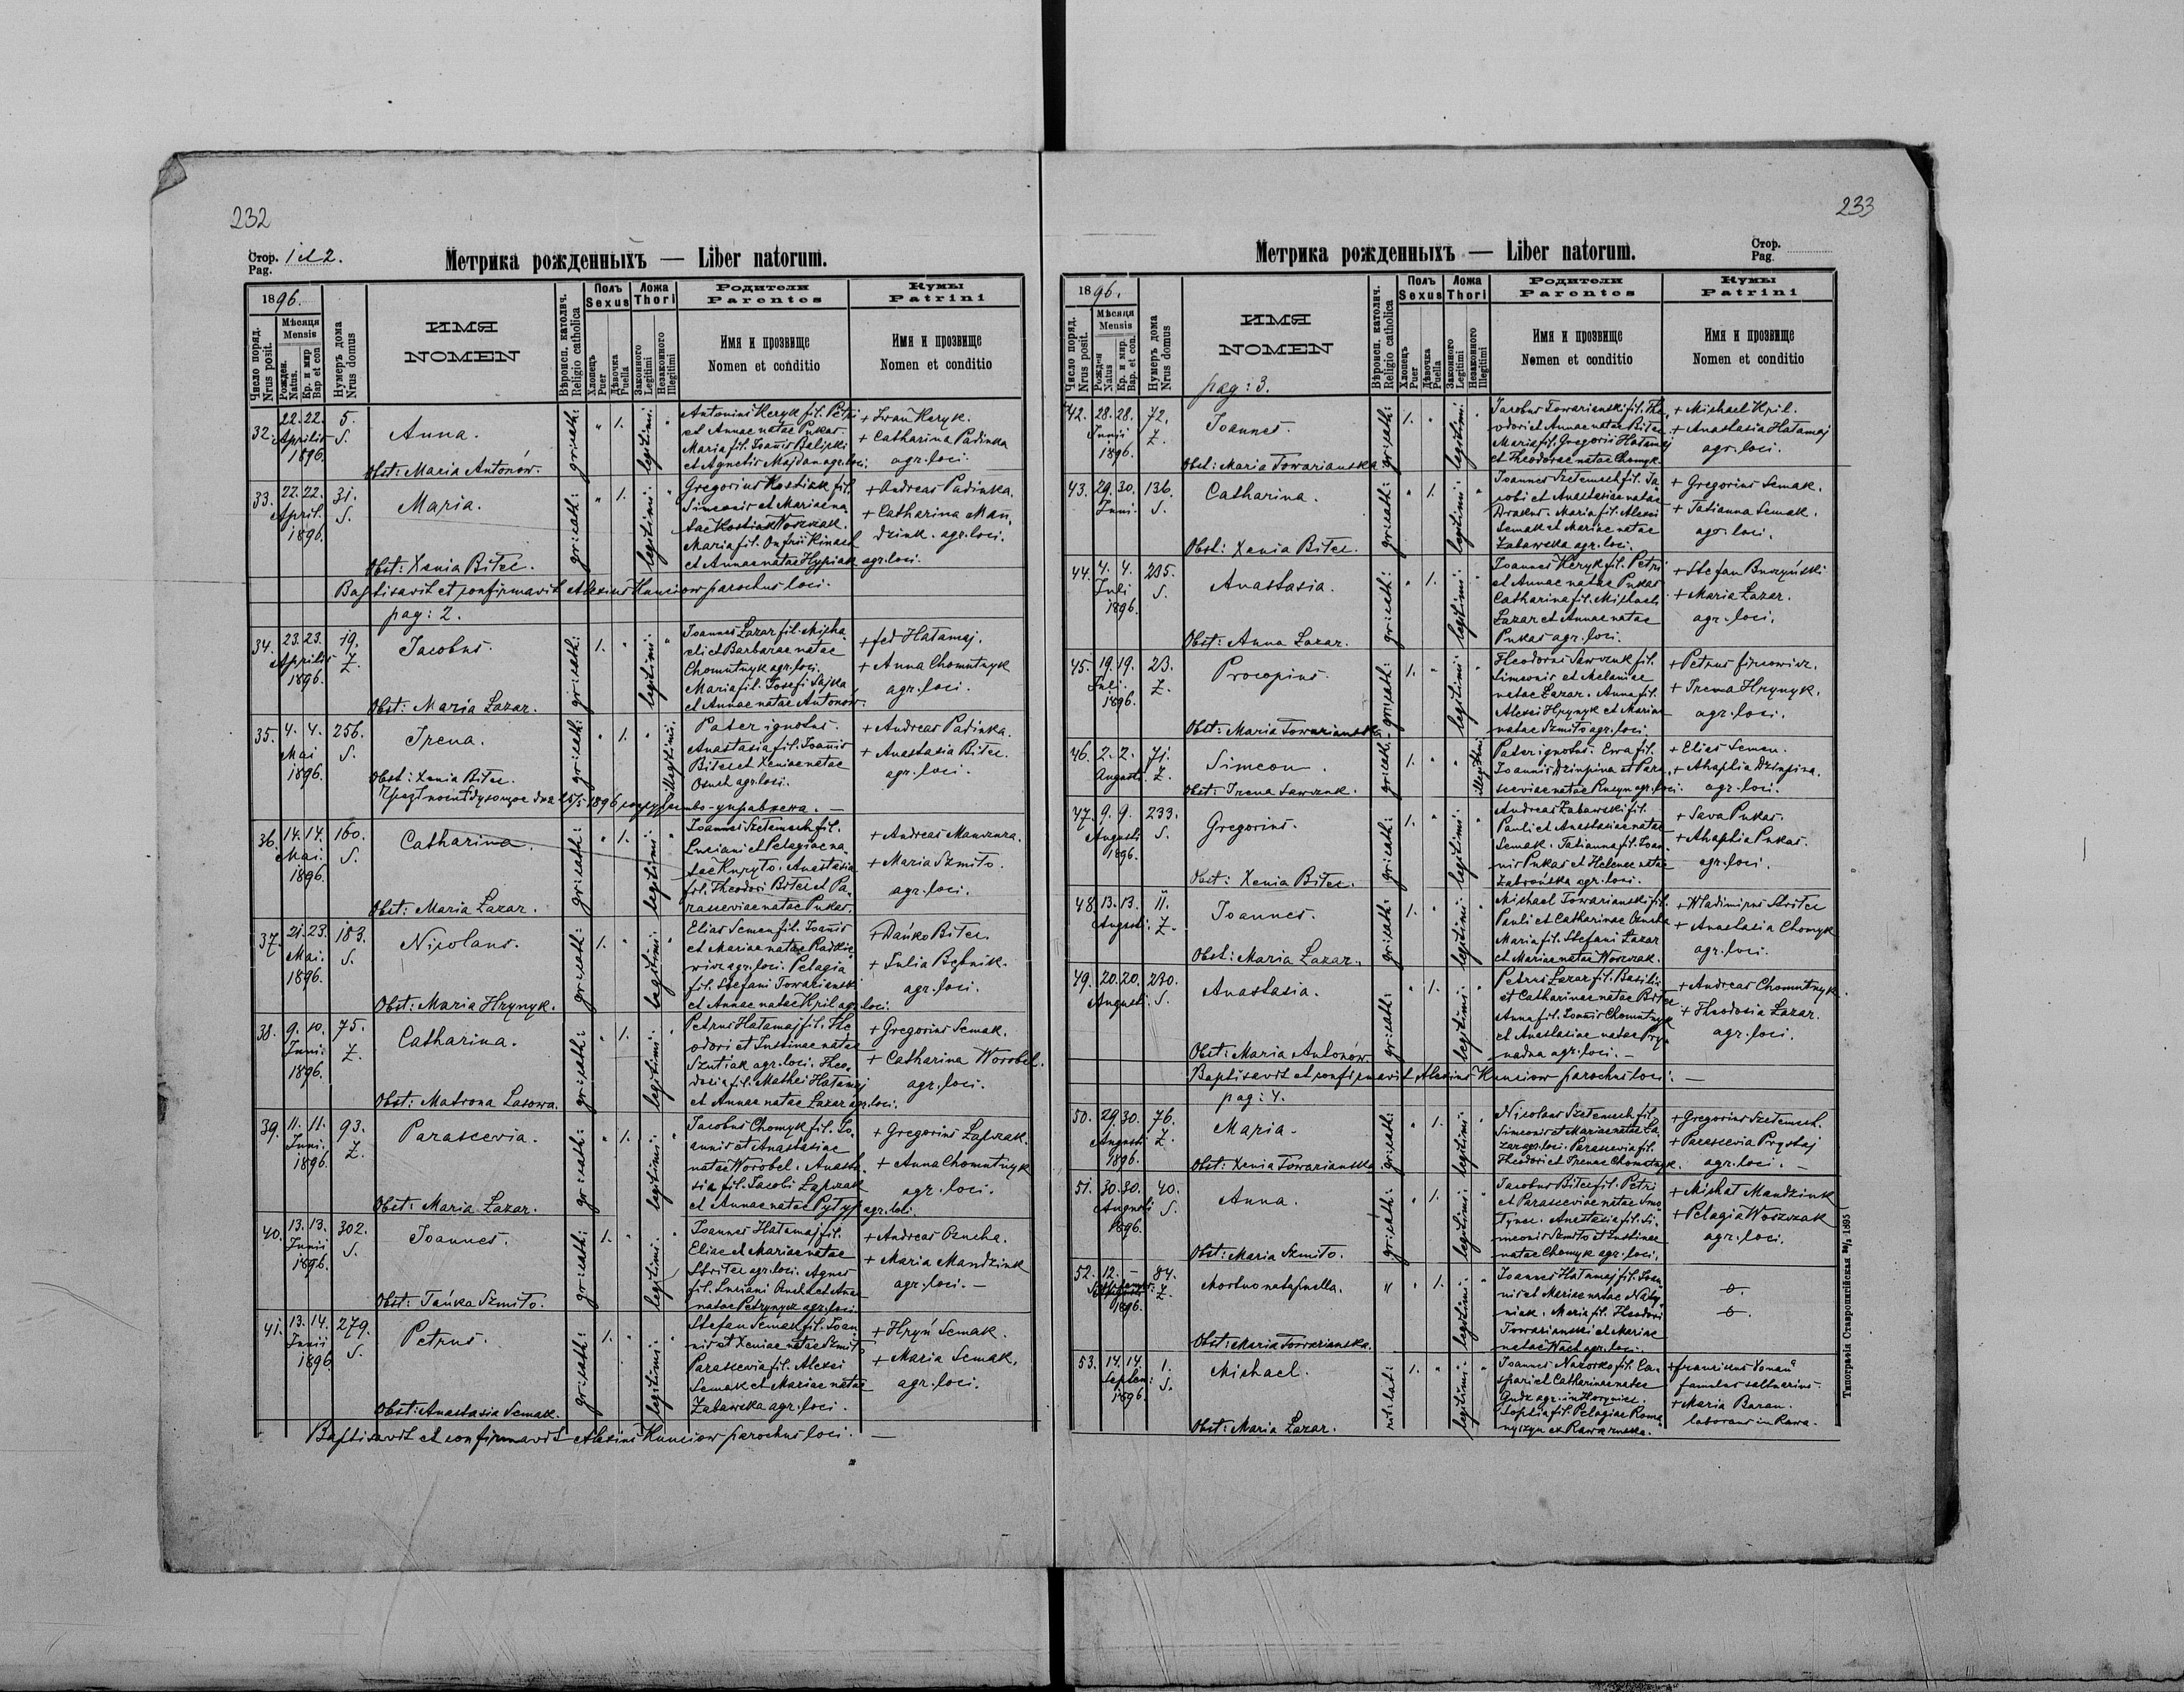 232
Стор. Pag. 1 et 2.
Метрика рожденныхъ — Liber natorum.
1896.
Число поряд. Nrus posit.
Мѣсяця Mensis
Рожден. Natus.
Кр. и мир Bap et con
Нумеръ дома Nrus domus
ИМЯ
NOMEN
Вѣроисп. католич. Religio catholica
Полъ Sexus
Хлопецъ Puer
Дѣвочка Puella
Ложа Thori
Законного Legitimi
Незаконного Illegitimi
Родители
Parentes
Имя и прозвище
Nomen et conditio
Кумы
Patrini
Имя и прозвище
Nomen et conditio
32. 22. 22. Aprilis 1896. 5. S.
Anna.
Obst: Maria Antonów.
gr: cath: " 1. legitimi: "
Antonius Keryk fil. Petri
et Annae natae Pukas.
Maria fil. Joannis Balicki
et Agnetis Majdan agr. loci.
+ Iwan Keryk.
+ Catharina Padinka
agr. loci.
33. 22. 22. April. 1896. 31. S.
Maria.
Obst: Xenia Bilec.
gr: cath: " 1. legitimi: "
Gregorius Kostiuk fil.
Simeonis et Mariae na
tae Woszczak.
Maria fil. Onfrii Kinach
et Annae natae Hypiak agr. loci.
+ Andreas Padinka.
+ Catharina Man,
dziuk. agr. loci.
Baptisavit et confirmavit Alexius Kunciow parochus loci.
pag: 2.
34. 23. 23. Aprilis 1896. 19. Z.
Jacobus.
Obst: Maria Łazar.
gr: cath: 1. " legitimi: "
Joannes Łazar fil. Micha
eli et Barbarae natae
Chomutnyk agr. loci.
Maria fil. Josefi Sajka
et Annae natae Antonów.
+ Fed Hałamaj.
+ Anna Chomutnyk
agr. loci.
35. 4. 4. Mai 1896. 256. S.
Irena.
Obst: Xenia Bilec.
gr: cath: " 1. " illegitimi:
Pater ignotus.
Anastasia fil. Joannis
Bilec et Xeniae natae
Oznch agr. loci.
+ Andreas Padinka.
+ Anastasia Bilec.
agr. loci.
36. 14. 14. Mai. 1896. 160. S.
Catharina.
Obst: Maria Łazar.
gr: cath: " 1. legitimi: "
Joannes Szełemech fil.
Luciani et Pelagiae na
tae Kuryło. Anastasia
fil. Theodori Bilec et Pa
rasceviae natae Pukas.
+ Andreas Manczura.
+ Maria Szmiło.
agr. loci.
37. 21. 23. Mai. 1896. 183. S.
Nicolaus.
Obst: Maria Hrynyk.
gr: cath: 1. " legitimi: "
Elias Semen fil. Joannis
et Mariae natae Radkie
wicz agr. loci. Pelagia
fil. Stefani Towarianski
et Annae natae Kril agr. loci.
+ Dańko Bilec.
+ Julia Bębnik.
agr. loci.
38. 9. 10. Junii 1896. 75. Z.
Catharina.
Obst: Matrona Lasowa.
gr: cath: " 1. legitimi: "
Petrus Hałamaj fil. The
odori et Justinae natae
Szutiak agr. loci. Theo,
dosia fil. Mathei Hałamaj
et Annae natae Łazar agr. loci.
+ Gregorius Semak.
+ Catharina Worobel.
agr. loci.
39. 11. 11. Juni. 1896. 93. Z.
Parascevia.
Obst: Maria Łazar.
gr: cath: " 1. legitimi: "
Jacobus Chomyk fil. Jo,
annis et Anastasiae
natae Worobel. Anasta
sia fil. Jacobi Łapczak
et Annae natae Pytyp agr. loci.
+ Gregorius Łapczak.
+ Anna Chomutnyk
agr. loci.
40. 13. 13. Junii 1896. 302. S.
Joannes.
Obst: Tańka Szmiło.
gr: cath: 1. " legitimi: "
Joannes Hałamaj fil.
Eliae et Mariae natae
Strilec agr. loci. Agnes
fil. Luciani et Annae
natae Petrynycz agr. loci.
+ Andreas Ozncha.
+ Maria Mandziuk
agr. loci. —
41. 13. 14. Junii 1896. 279. S.
Petrus.
Obst: Anastasia Semak.
gr: cath: 1. " legitimi: "
Stefan Semak fil. Joan
nis et Xeniae natae Szmiło
Parascevia fil. Alexi
Semak et Mariae natae
Zabawska agr. loci.
+ Hryń Semak.
+ Maria Semak.
agr. loci.
Baptisavit et confirmavit Alexius Kunciow parochus loci. —
233
Стор. Pag.
Метрика рожденныхъ — Liber natorum.
1896.
Число поряд. Nrus posit.
Мѣсяця Mensis
Рожден Natus
Кр. и мир. Bap. et con.
Нумеръ дома Nrus domus
ИМЯ
NOMEN
pag: 3.
Вѣроисп. католич. Religio catholica
Полъ Sexus
Хлопецъ Puer
Дѣвочка Puella
Ложа Thori
Законного Legitimi
Незаконного Illegitimi
Родители
Parentes
Имя и прозвище
Nomen et conditio
Кумы
Patrini
Имя и прозвище
Nomen et conditio
42. 28. 28. Junii 1896. 72. Z.
Joannes.
Obst: Maria Towarianska
gr: cath: 1. " legitimi: "
Jacobus Towarianski fil. The,
odori et Annae natae Bilec.
Maria fil. Gregorii Hałamaj
et Theodorae natae Chomyk.
+ Michael Kril.
+ Anastasia Hałamaj
agr. loci.
43. 29. 30. Juni. 136. S.
Catharina.
Obst: Xenia Bilec.
gr: cath: " 1. legitimi: "
Joannes Szełemech fil. Ja
cobi et Anastasiae natae
Drakus. Maria fil. Alexii
Semak et Mariae natae
Zabawska agr. loci.
+ Gregorius Semak.
+ Tatianna Semak.
agr. loci.
44. 4. 4. Juli 1896. 235. S.
Anastasia.
Obst: Anna Łazar.
gr: cath: " 1. legitimi: "
Joannes Keryk fil. Petri
et Annae natae Pukas
Catharina fil. Michaeli
Łazar et Annae natae
Pukas agr. loci.
+ Stefan Buczyński
+ Maria Łazar.
agr. loci.
45. 19. 19. Juli. 1896. 23. Z.
Procopius.
Obst: Maria Towarianska
gr: cath: 1. " legitimi: "
Theodorus Sawczuk fil.
Simeonis et Melaniae
natae Łazar. Anna fil.
Alexei Hrynyk et Mariae
natae Szmiło agr. loci.
+ Petrus Fircowicz.
+ Irena Hrynyk.
agr. loci.
46. 2. 2. Augusti. 71. Z.
Simeon.
Obst: Irena Sawczuk.
gr: cath: 1. " " illegitimi
Pater ignotus. Ewa fil.
Joannis Dziupina et Para,
sceviae natae Rusyn agr. loci.
+ Elias Semen.
+ Ahaphia Dziupina.
agr. loci.
47. 9. 9. Augusti 1896. 233. S.
Gregorius.
Obst: Xenia Bilec.
gr: cath: 1. " legitimi: "
Andreas Zabawski fil.
Pauli et Anastasiae natae
Semak. Tatianna fil. Joan
nis Pukas et Helenae natae
Zabrońska agr. loci.
+ Sava Pukas.
+ Ahaphia Pukas.
agr. loci.
48. 13. 13. Augusti. 11. Z.
Joannes.
Obst: Maria Łazar.
gr: cath: 1. " legitimi: "
Michael Towarianski fil.
Pauli et Catharinae Ozncha
Maria fil. Stefani Łazar
et Mariae natae Woszczak.
+ Wladimirus Strilec
+ Anastasia Chomyk
agr. loci.
49. 20. 20. Augusti. 230. S.
Anastasia.
Obst: Maria Antonów.
gr: cath: " 1. legitimi: "
Petrus Łazar fil. Basilii
et Catharinae natae Bilec
Anna fil. Joannis Chomutnyk
et Anastasiae natae Pry,
nadna agr. loci. —
+ Andreas Chomutnyk.
+ Theodosia Łazar.
agr. loci.
Baptisavit et confirmavit Alexius Kunciow parochus loci. —
pag: 4.
50. 29. 30. Augusti 1896. 76. Z.
Maria.
Obst: Xenia Towarianska
gr: cath: " 1. legitimi: "
Nicolaus Szełemech fil.
Simeonis et Mariae natae Ła,
zar agr. loci. Parascevia fil.
Theodori et Irenae Chomutnyk.
+ Gregorius Szełemech.
+ Parascevia Prystaj
agr. loci. —
51. 30. 30. Augusti 1896. 40. S.
Anna.
Obst: Maria Szmiło.
gr: cath: " 1. legitimi: "
Jacobus Bilec fil. Petri
et Parasceviae natae Smo
łyniec. Anastasia fil. Si,
meonis Szmiło et Justinae
natae Chomyk agr. loci.
+ Michał Mandziuk
+ Pelagia Woszczak
agr. loci.
52. 12. — 1896. 84. Z.
Mortuo nata puella.
Obst: Maria Towarianska.
" " 1. legitimi: "
Joannes Hałamaj fil. Joan
nis et Mariae natae Naty
niak. Maria fil. Theodori
Towarianski et Mariae
natae Wach agr. loci.
53. 14. 14. Septem: 1896. 1. S.
Michael.
Obst: Maria Łazar.
rit: lat: 1. " legitimi: "
Joannes Nazorko fil. Ca,
spari et Catharinae natae
Gudz agr. in Horyniec.
Sophia fil. Pelagiae Roma
nyszyn ex Rawa ruska.
+ Franciscus
famulus saltuarius.
+ Maria Baran.
laborans in Rawa.
Типографія Ставропигійская 1895